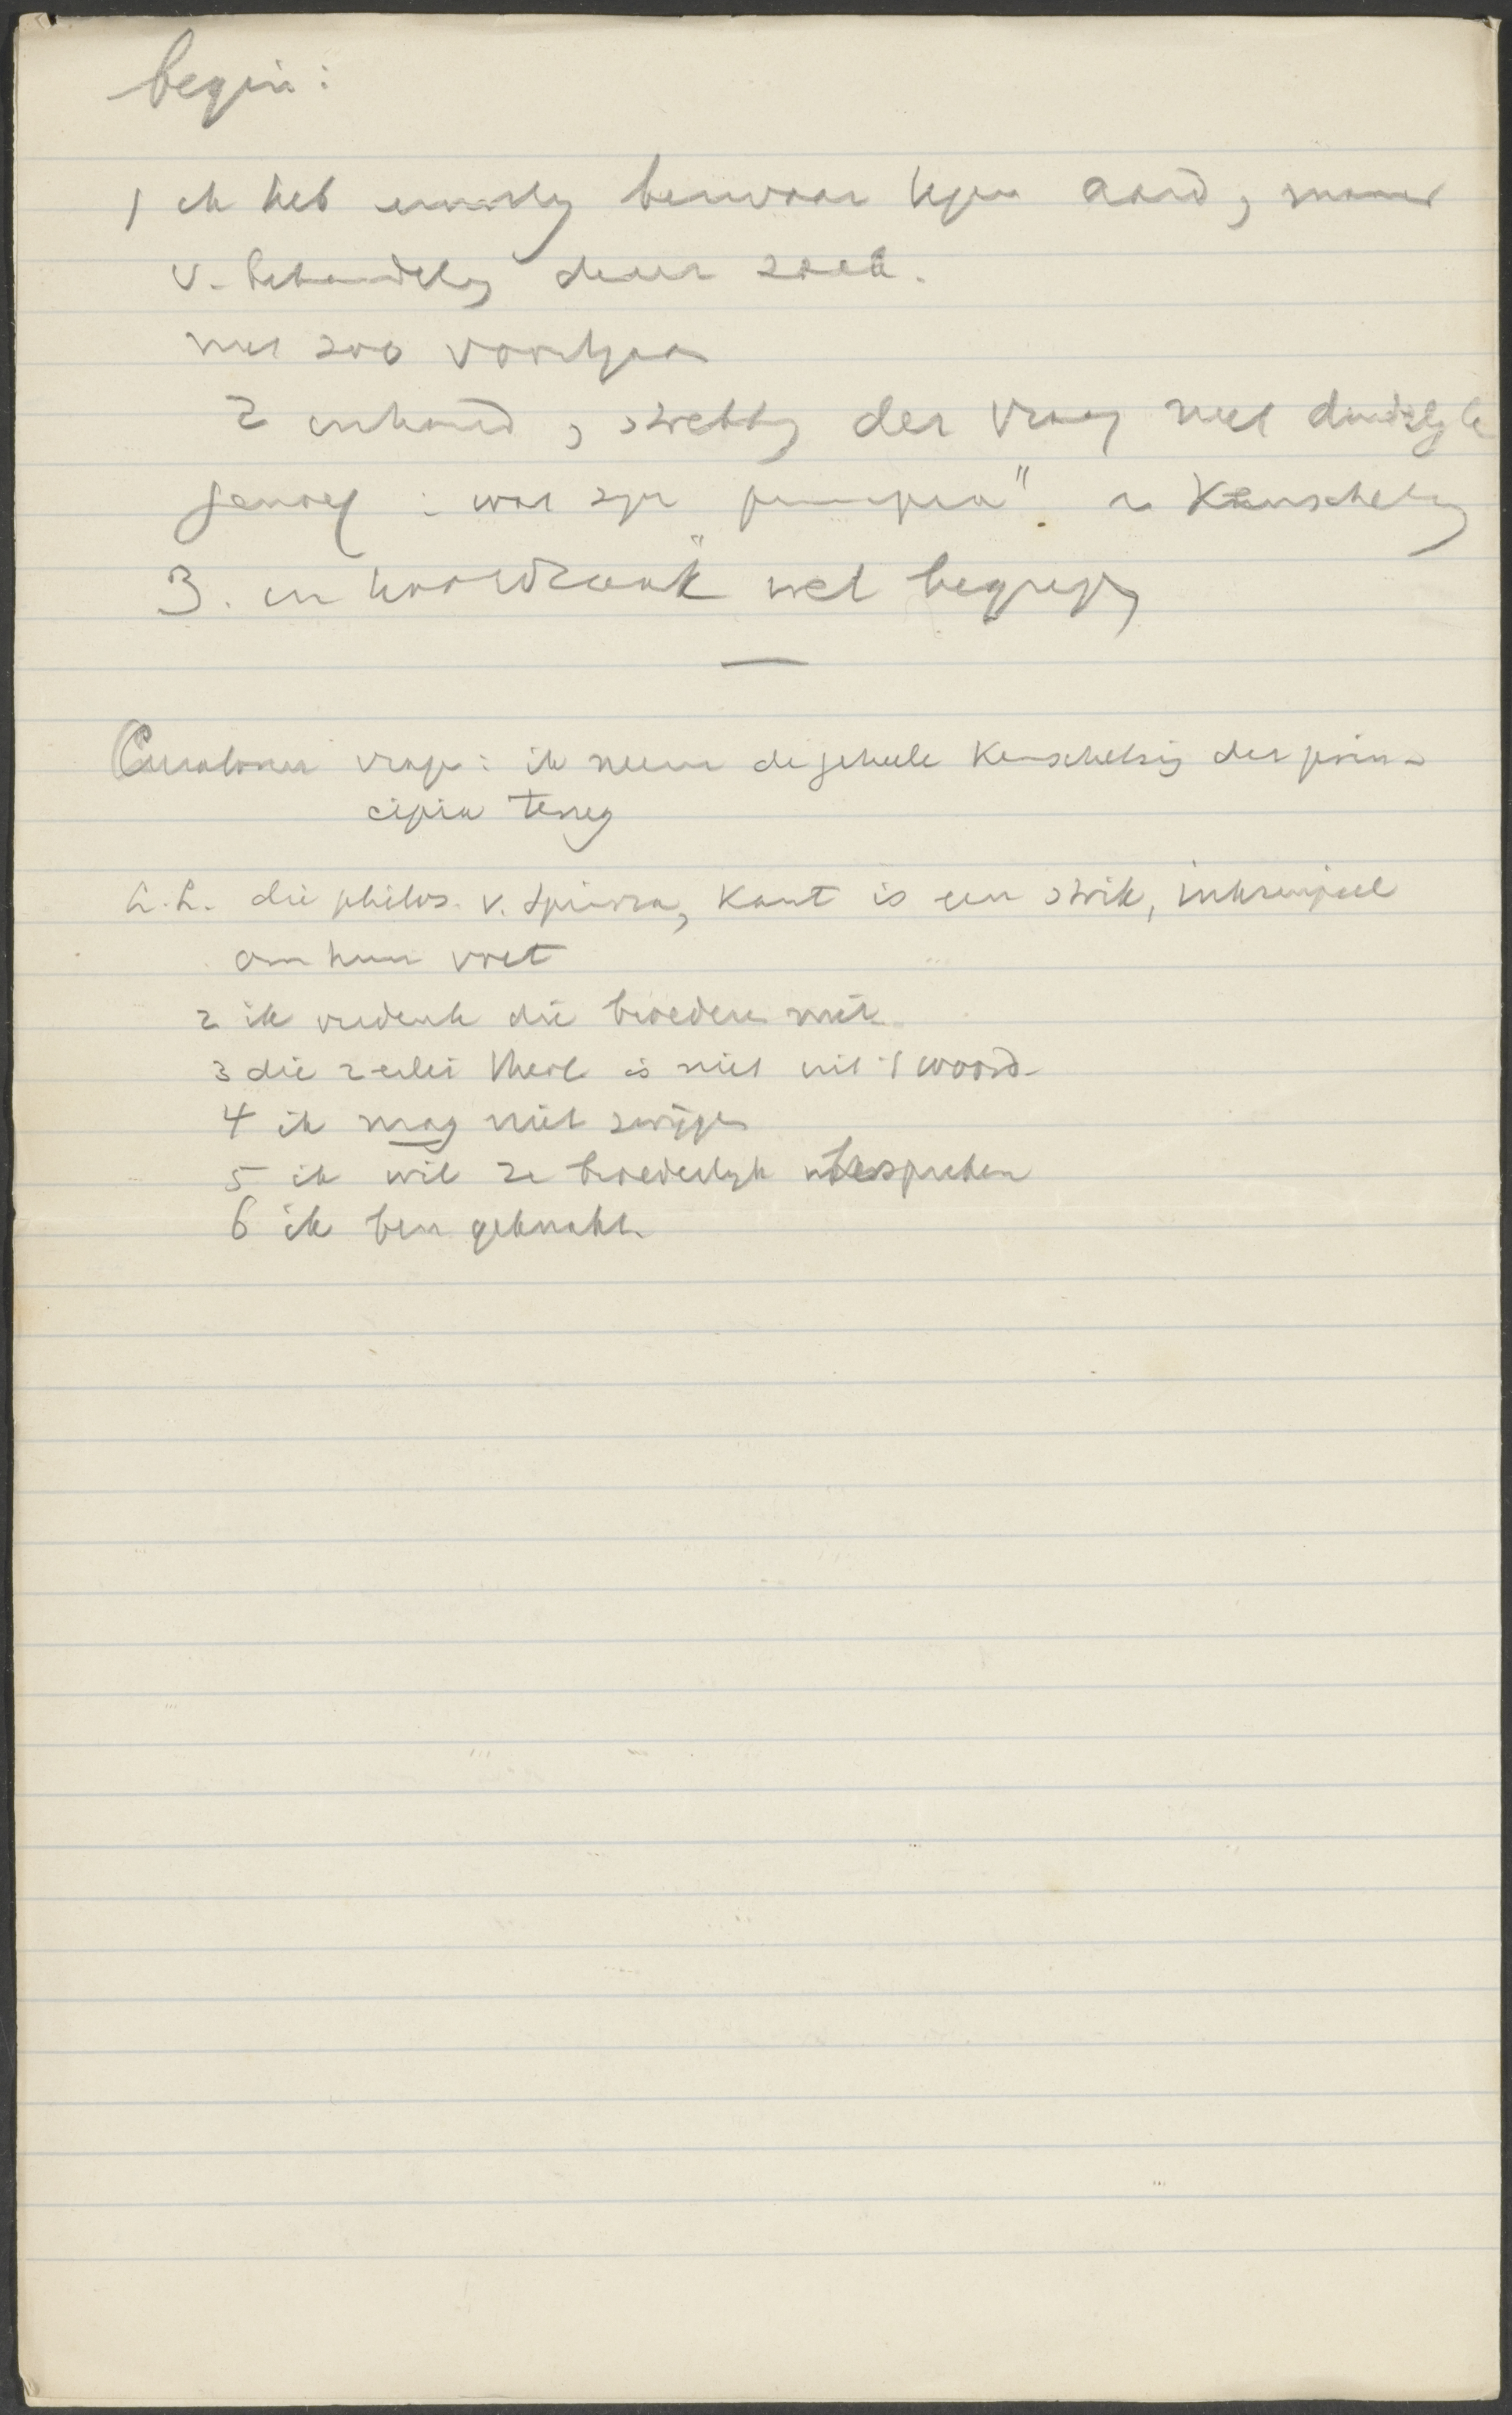 begin:
1 ik heb ernstig bezwaar tegen aard, manier
v. behandeling dezer zaak.
niet zoo voortgaan
2 inhoud, strekking der vraag niet duidelijk
genoeg: wat zijn "principia" en Kenschetsing
3. in hoofdzaak wel begrepen
Curatoren vragen: ik neem de geheele Kenschetsing der prin-
cipia terug
h.h. die philos. v. Spinoza, Kant is een strik,
om hun voet
2 ik verdenk die broeders niet
3 die 2erlei theol is niet uit 't woord
4 ik mag niet zwijgen
5 ik wil ze broederlijk bespreken
6 ik ben geknakt.